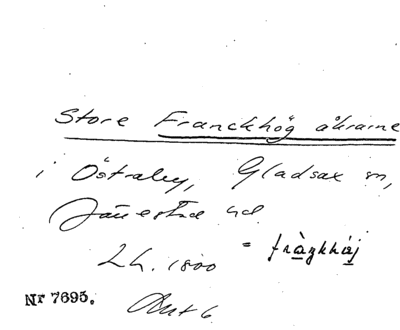 Store Franckhög åkrarne
i Östraby, Gladsax sn,
Järrestad hd
L h. 1800 = fràŋkhǿj
Nr 7695.